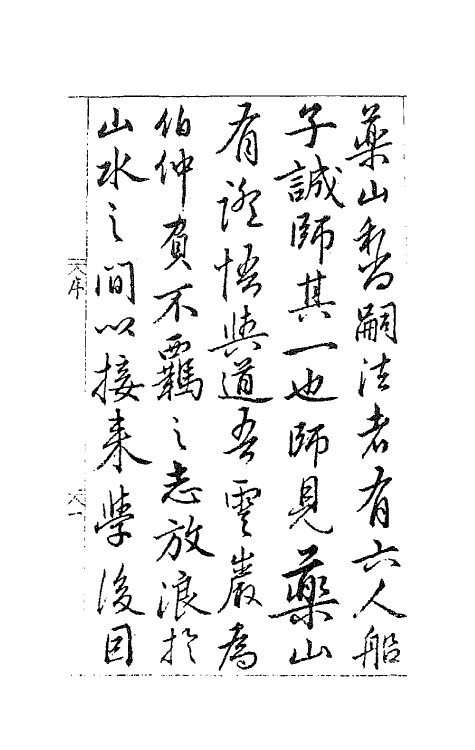 藥山所嗣法者有六人船
子誠師其一也師見藥山
有證悟與道吾雲巖為
伯仲負不羈之志放浪於
山水之間以接來學後因
大序
大一